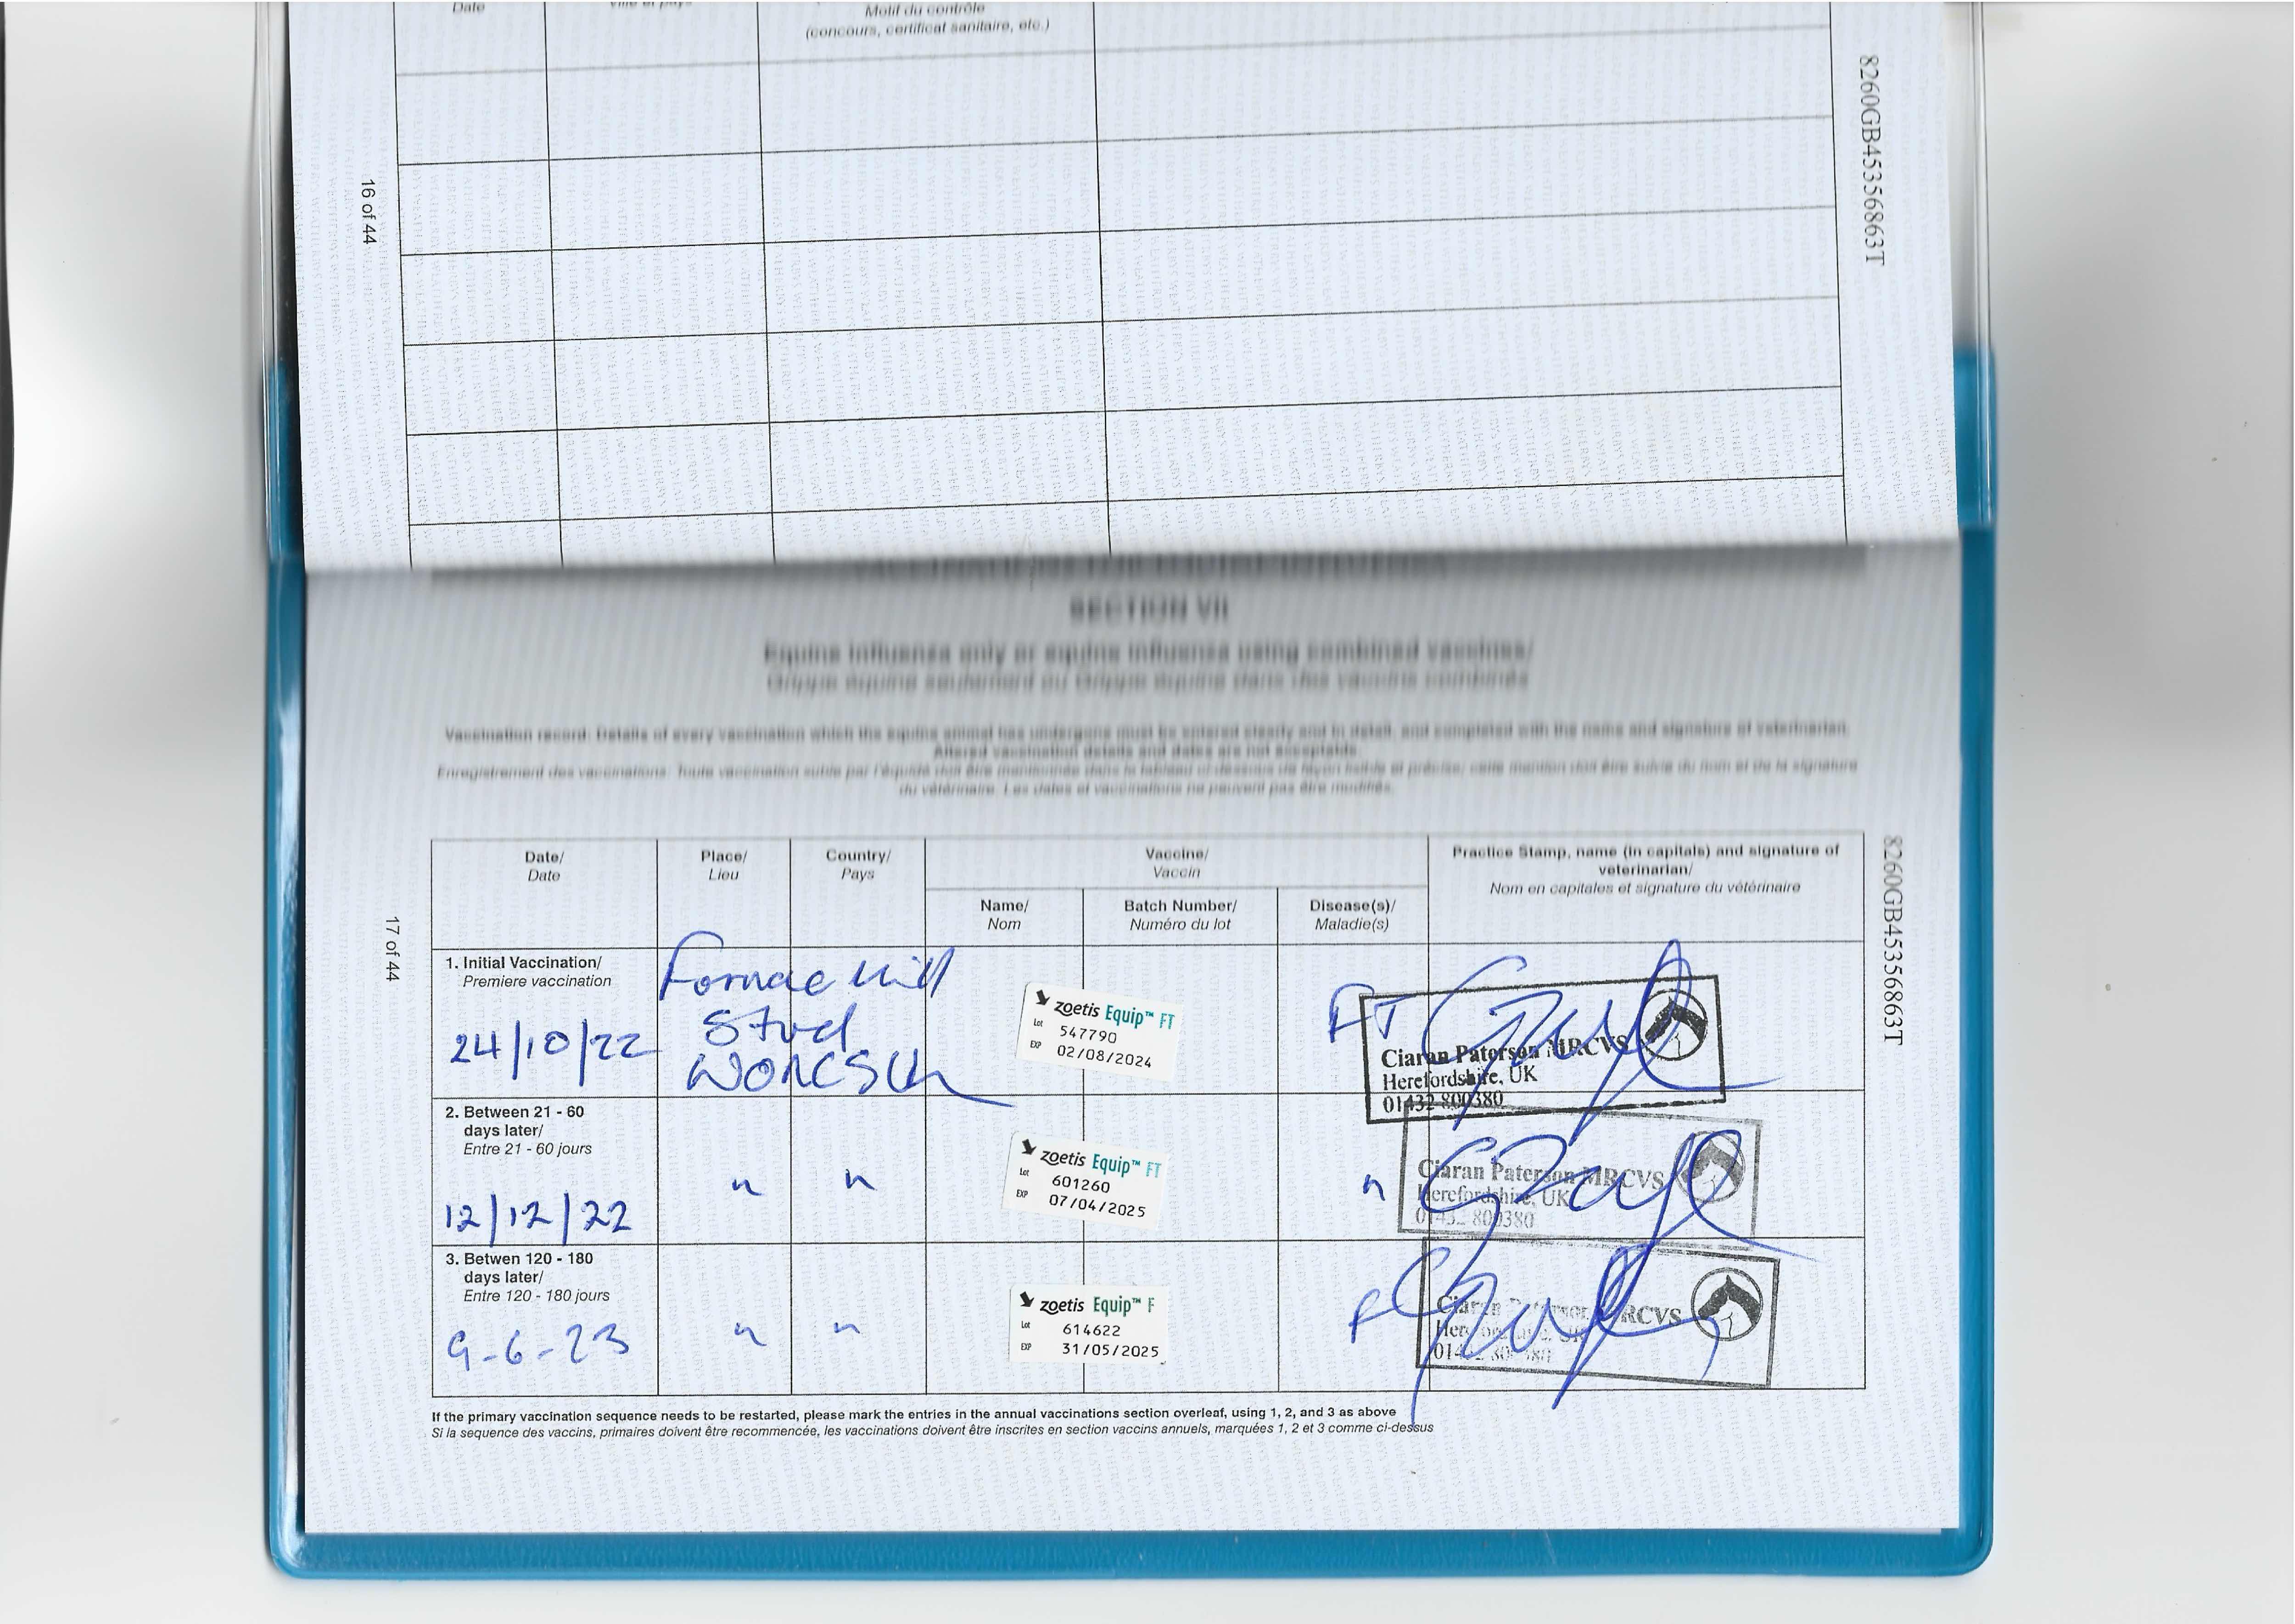 Date
Ville et pays
Motif du contrôle
(concours, certificat sanitaire, etc.)
8260GB45356863T
16 of 44
SECTION VII
Equine influenza only or equine influenza using combined vaccines/
Grippe équine seulement ou Grippe équine dans des vaccins combinés
Vaccination record: Details of every vaccination which the equine animal has undergone must be entered clearly and in detail, and completed with the name and signature of veterinarian.
Altered vaccination details and dates are not acceptable.
Enregistrement des vaccinations: Toute vaccination subie par l'équidé doit être mentionnée dans le tableau ci-dessous de façon lisible et précise; cette mention doit être suivie du nom et de la signature
du vétérinaire. Les dates et vaccinations ne peuvent pas être modifiés.
8260GB45356863T
17 of 44
Date/
Date
Place/
Lieu
Country/
Pays
Vaccine/
Vaccin
Practice Stamp, name (in capitals) and signature of
veterinarian/
Nom en capitales et signature du vétérinaire
Name/
Nom
Batch Number/
Numéro du lot
Disease(s)/
Maladie(s)
1. Initial Vaccination/
Premiere vaccination
24/10/22
Mill
Stud
zoetis Equip™ FT
Lot 547790
EXP 02/08/2024
FT
Ciaran Paterson MRCVS
Herefordshire, UK
01432 800380
2. Between 21 - 60
days later/
Entre 21 - 60 jours
12/12/22
"
"
zoetis Equip™ FT
Lot 601260
EXP 07/04/2025
"
Ciaran Paterson MRCVS
Herefordshire, UK
01432 800380
3. Betwen 120 - 180
days later/
Entre 120 - 180 jours
9-6-23
"
"
zoetis Equip™ F
Lot 614622
EXP 31/05/2025
F
Ciaran Paterson MRCVS
Herefordshire, UK
01432 800380
If the primary vaccination sequence needs to be restarted, please mark the entries in the annual vaccinations section overleaf, using 1, 2, and 3 as above
Si la sequence des vaccins, primaires doivent être recommencée, les vaccinations doivent être inscrites en section vaccins annuels, marquées 1, 2 et 3 comme ci-dessus